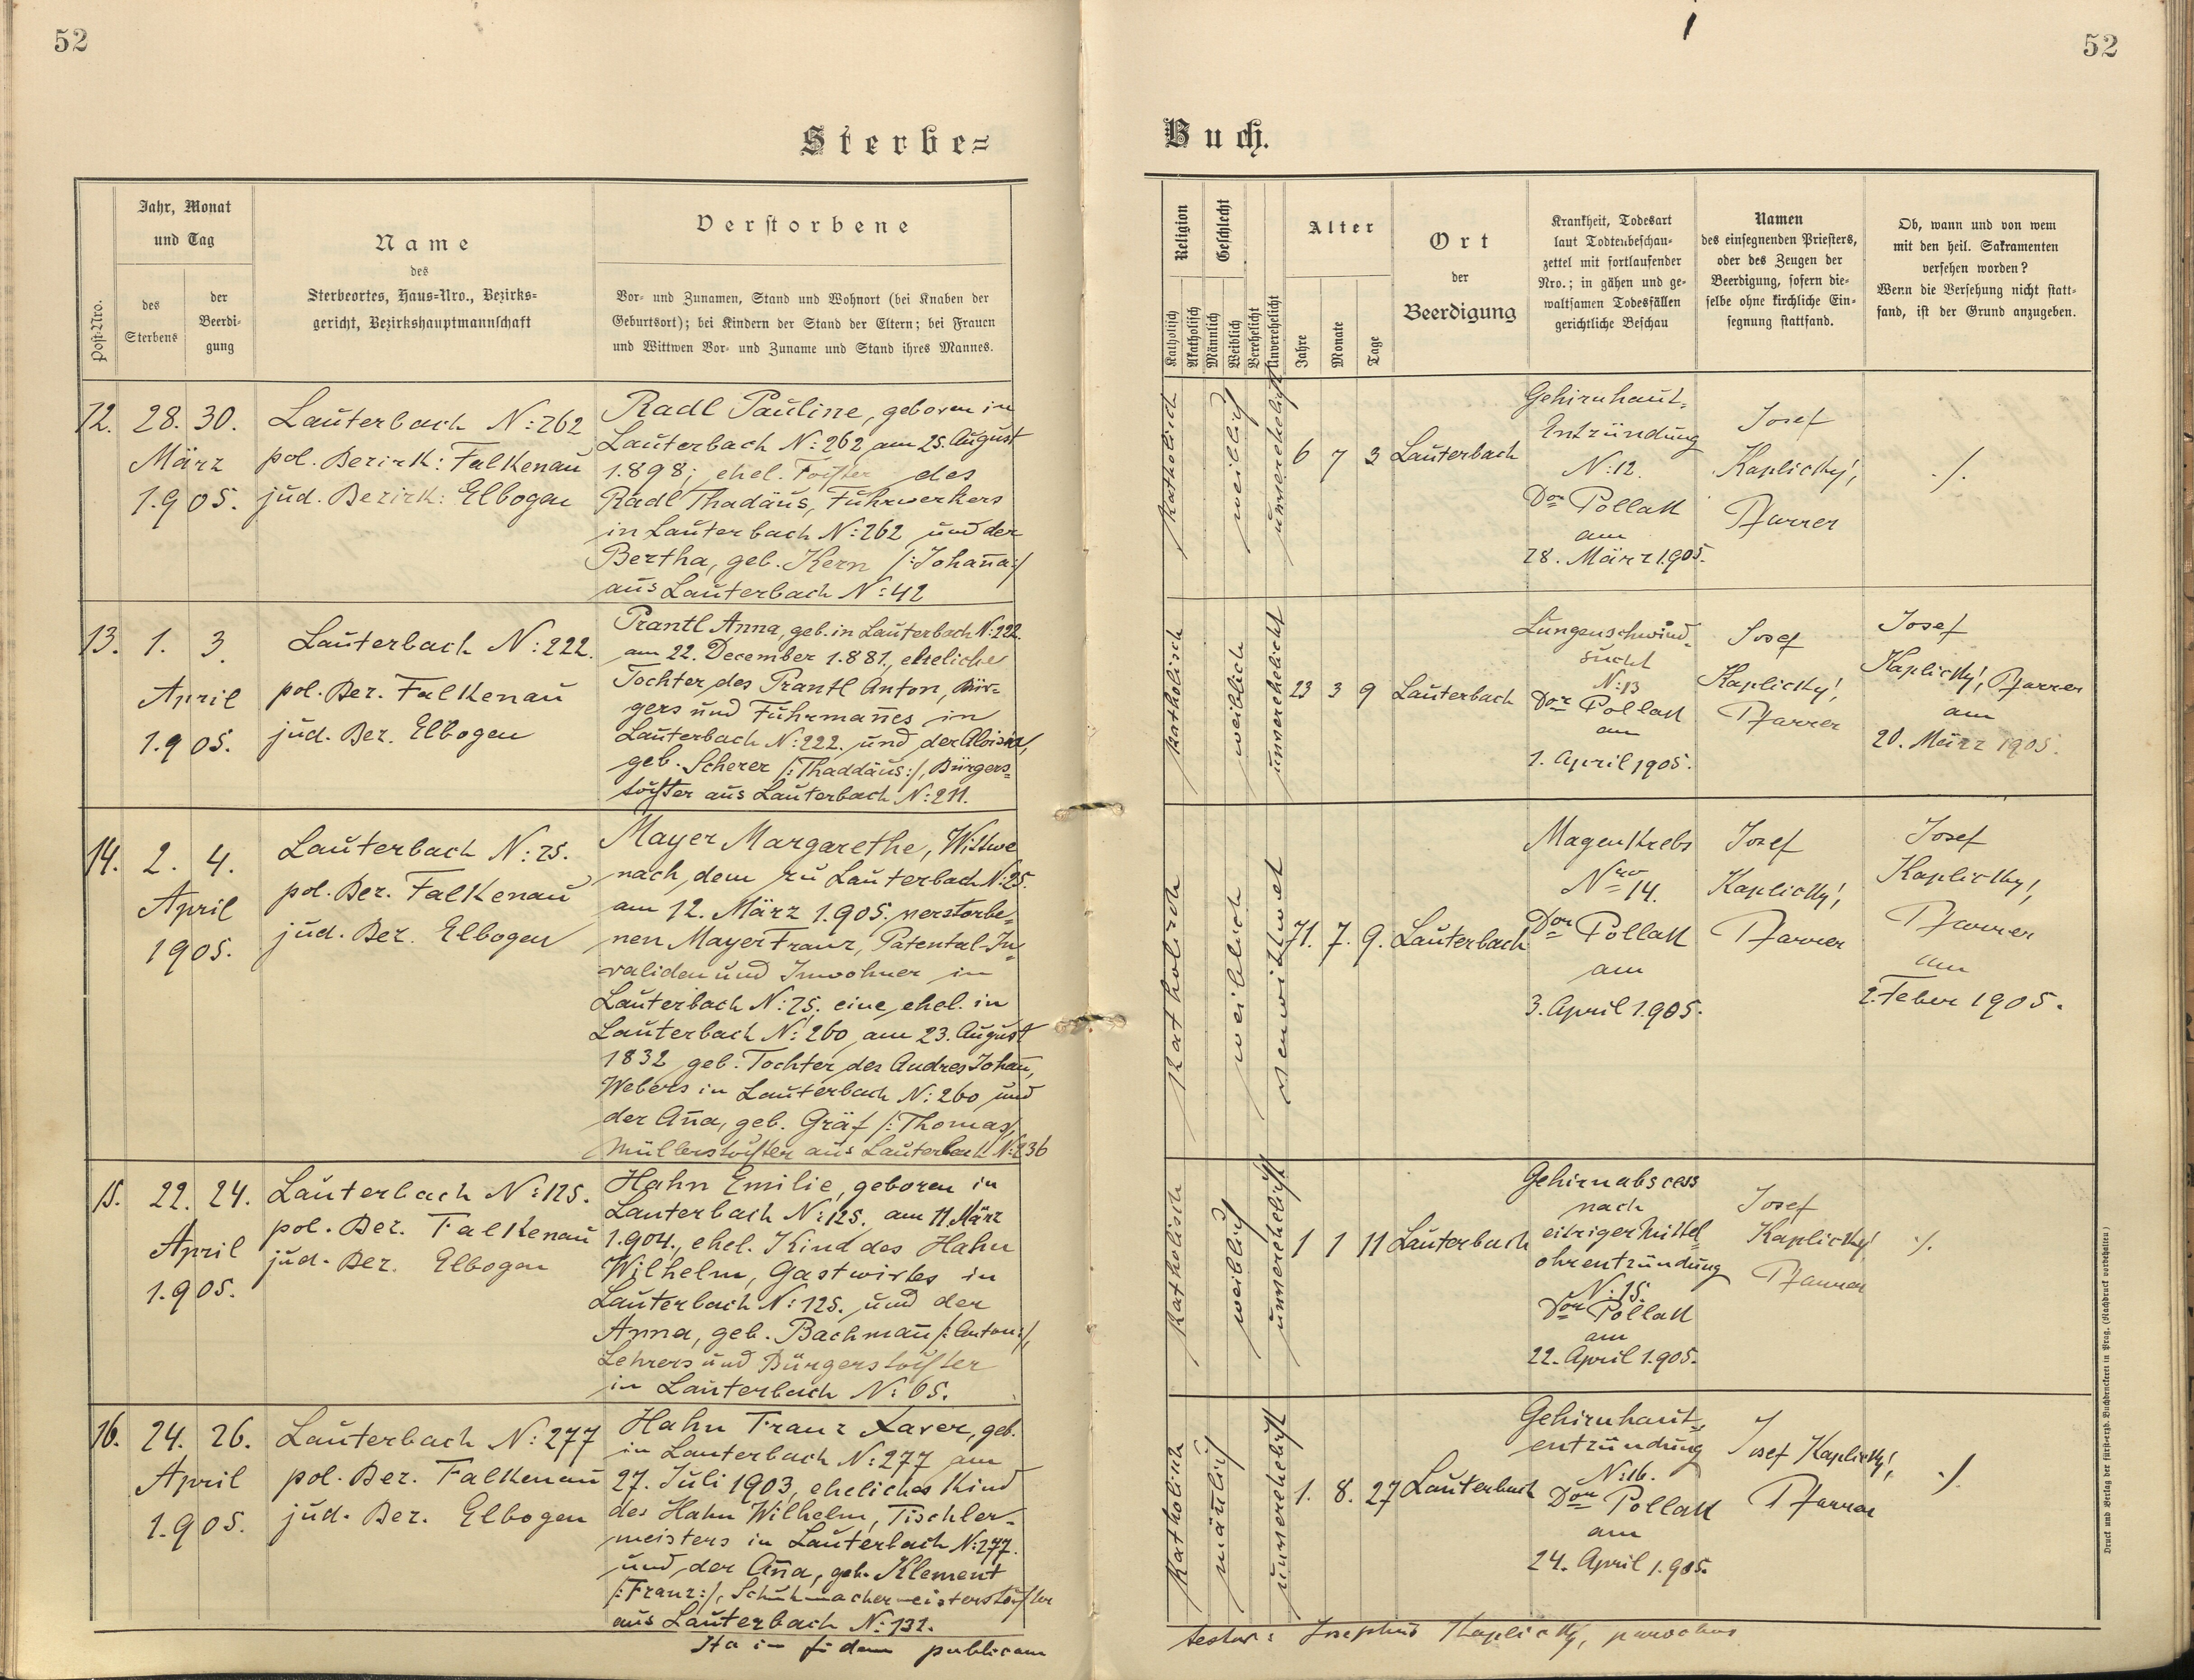 52
52
Sterbe=
Buch.
Post-Nro.
Jahr, Monat
und Tag
des
Sterbens
der
Beerdi-
gung
Name
des
Sterbeortes, Haus-Nro., Bezirks-
gericht, Bezirkshauptmannschaft
Verstorbene
Vor- und Zunamen, Stand und Wohnort (bei Knaben der
Geburtsort); bei Kindern der Stand der Eltern; bei Frauen
und Wittwen Vor- und Zuname und Stand ihres Mannes.
Religion
Katholisch
Akatholisch
Geschlecht
Männlich
Weiblich
Verehelicht
Unverehelicht
Alter
Jahre
Monate
Tage
Ort
der
Beerdigung
Krankheit, Todesart
laut Todtenbeschau-
zettel mit fortlaufender
Nro.; in gähen und ge-
waltsamen Todesfällen
gerichtliche Beschau
Namen
des einsegnenden Priesters,
oder des Zeugen der
Beerdigung, sofern die-
selbe ohne kirchliche Ein-
segnung stattfand.
Ob, wann und von wem
mit den heil. Sakramenten
versehen worden?
Wenn die Versehung nicht statt-
fand, ist der Grund anzugeben.
12.
28. 30.
März
1.905.
Lauterbach N:262
pol. Bezirk: Falkenau
jud. Bezirk: Elbogen
Radl Pauline, geboren in
Lauterbach N:262, am 25. August
1.898; ehel. Tochter des
Radl Thadäus, Fuhrwerkers
in Lauterbach N:262 und der
Bertha, geb. Kern /:Johan̄a:/
aus Lauterbach N:42
katholisch
weiblich
unverehelicht
6 7 3
Lauterbach
Gehirnhaut-
Entzündung
N:12.
Dor Pollak
am
28. März 1.905.
Josef
Kaplický,
Pfarrer
./.
13.
1. 3.
April
1.905.
Lauterbach N:222.
pol. Bez. Falkenau
jud. Bez. Elbogen
Prantl Anna, geb. in Lauterbach N:222.
am 22. December 1.881., eheliche
Tochter des Prantl Anton, Bür-
gers und Fuhrman̄es in
Lauterbach N:222. und der Aloisia,
geb. Scherer /:Thaddäus:/, Bürgers-
tochter aus Lauterbach N:211.
katholisch
weiblich
unverehelicht
23 3 9
Lauterbach
Lungenschwind-
sucht
N:13
Dor Pollak
am
1. April 1905.
Josef
Kaplický,
Pfarrer
Josef
Kaplický, Pfarrer
am
20. März 1905.
14.
2. 4.
April
1905.
Lauterbach N:25.
pol. Bez. Falkenau
jud. Bez. Elbogen
Mayer Margarethe, Wittwe
nach dem zu Lauterbach N:25.
am 12. März 1.905. verstorbe-
nen Mayer Franz, Patental-In-
validen und Inwohner in
Lauterbach N:25. eine ehel. in
Lauterbach N:260 am 23. August
1832 geb. Tochter des Andres Johan̄,
Webers in Lauterbach N:260 und
der An̄a, geb. Gräf /:Thomas,
Müllerstochter aus Lauterbach N:236
katholisch
weiblich
verwittwet
71. 7. 9.
Lauterbach
Magenkrebs
Nro 14.
Dor Pollak
am
3. April 1.905.
Josef
Kaplický,
Pfarrer
Josef
Kaplický,
Pfarrer
am
2. Feber 1905.
15.
22. 24.
April
1.905.
Lauterbach N:125.
pol. Bez. Falkenau
jud. Bez. Elbogen
Hahn Emilie, geboren in
Lauterbach N:125. am 11. März
1.904., ehel. Kind des Hahn
Wilhelm, Gastwirtes in
Lauterbach N:125. und der
Anna, geb. Bachman̄ /:Anton:/,
Lehrers und Bürgerstochter
in Lauterbach N:65.
katholisch
weiblich
unverehelicht
1 1 11
Lauterbach
Gehirnabscess
nach
eitriger Mittel-
ohrentzündung
N:15.
Dor Pollak
am
22. April 1.905.
Josef
Kaplický
Pfarrer
./.
16.
24. 26.
April
1.905.
Lauterbach N:277
pol. Bez. Falkenau
jud. Bez. Elbogen
Hahn Franz Xaver, geb.
in Lauterbach N:277 am
27. Juli 1903, eheliches Kind
des Hahn Wilhelm, Tischler-
meisters in Lauterbach N:277.
und der An̄a, geb. Klement
/:Franz:/, Schuhmachermeisterstochter
aus Lauterbach N:132.
katholisch
män̄lich
unverehelicht
1. 8. 27
Lauterbach
Gehirnhaut-
entzündung
N:16.
Dor Pollak
am
24. April 1.905.
Josef Kaplický,
Pfarrer
./.
Ita in fidem publicam
testor: Josephus Kaplický, parochus
Druck und Verlag der fürst-erzb. Buchdruckerei in Prag. (Nachdruck vorbehalten.)